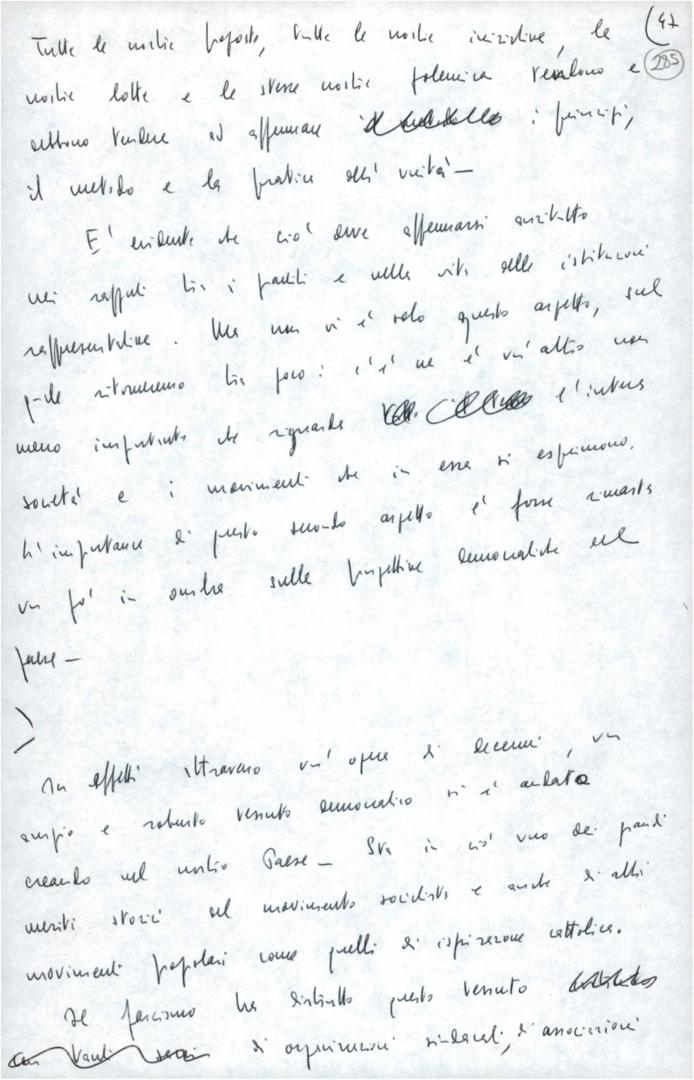 Tutte le nostre proposte, tutte le nostre iniziative, le (47
nostre lotte e le stesse nostre polemica tendono e 285
debbono tendere ad affermare i principi,
il metodo e la pratica dell'unità -
E' evidente che ciò deve affermarsi anzitutto
nei rapporti tra i partiti e nella vita delle istituzioni
rappresentative. Ma non vi è solo questo aspetto, sul
quale ritorneremo tra poco: c'è ne è un'altro non
meno importante che riguarda l'intera
società e i movimenti che in essa si esprimono.
L'importanza di questo secondo aspetto è forse rimasta
un pò in ombra sulle prospettive democratiche del
paese -
In effetti attraverso un'opera di decenni, un
ampio e robusto tessuto democratico si è andato
creando nel nostro Paese - Sta in ciò uno dei grandi
meriti storici del movimento socialista e anche di altri
movimenti popolari come quelli di ispirazione cattolica.
Il fascismo ha distrutto questo tessuto
di organizzazioni sindacali, di associazioni